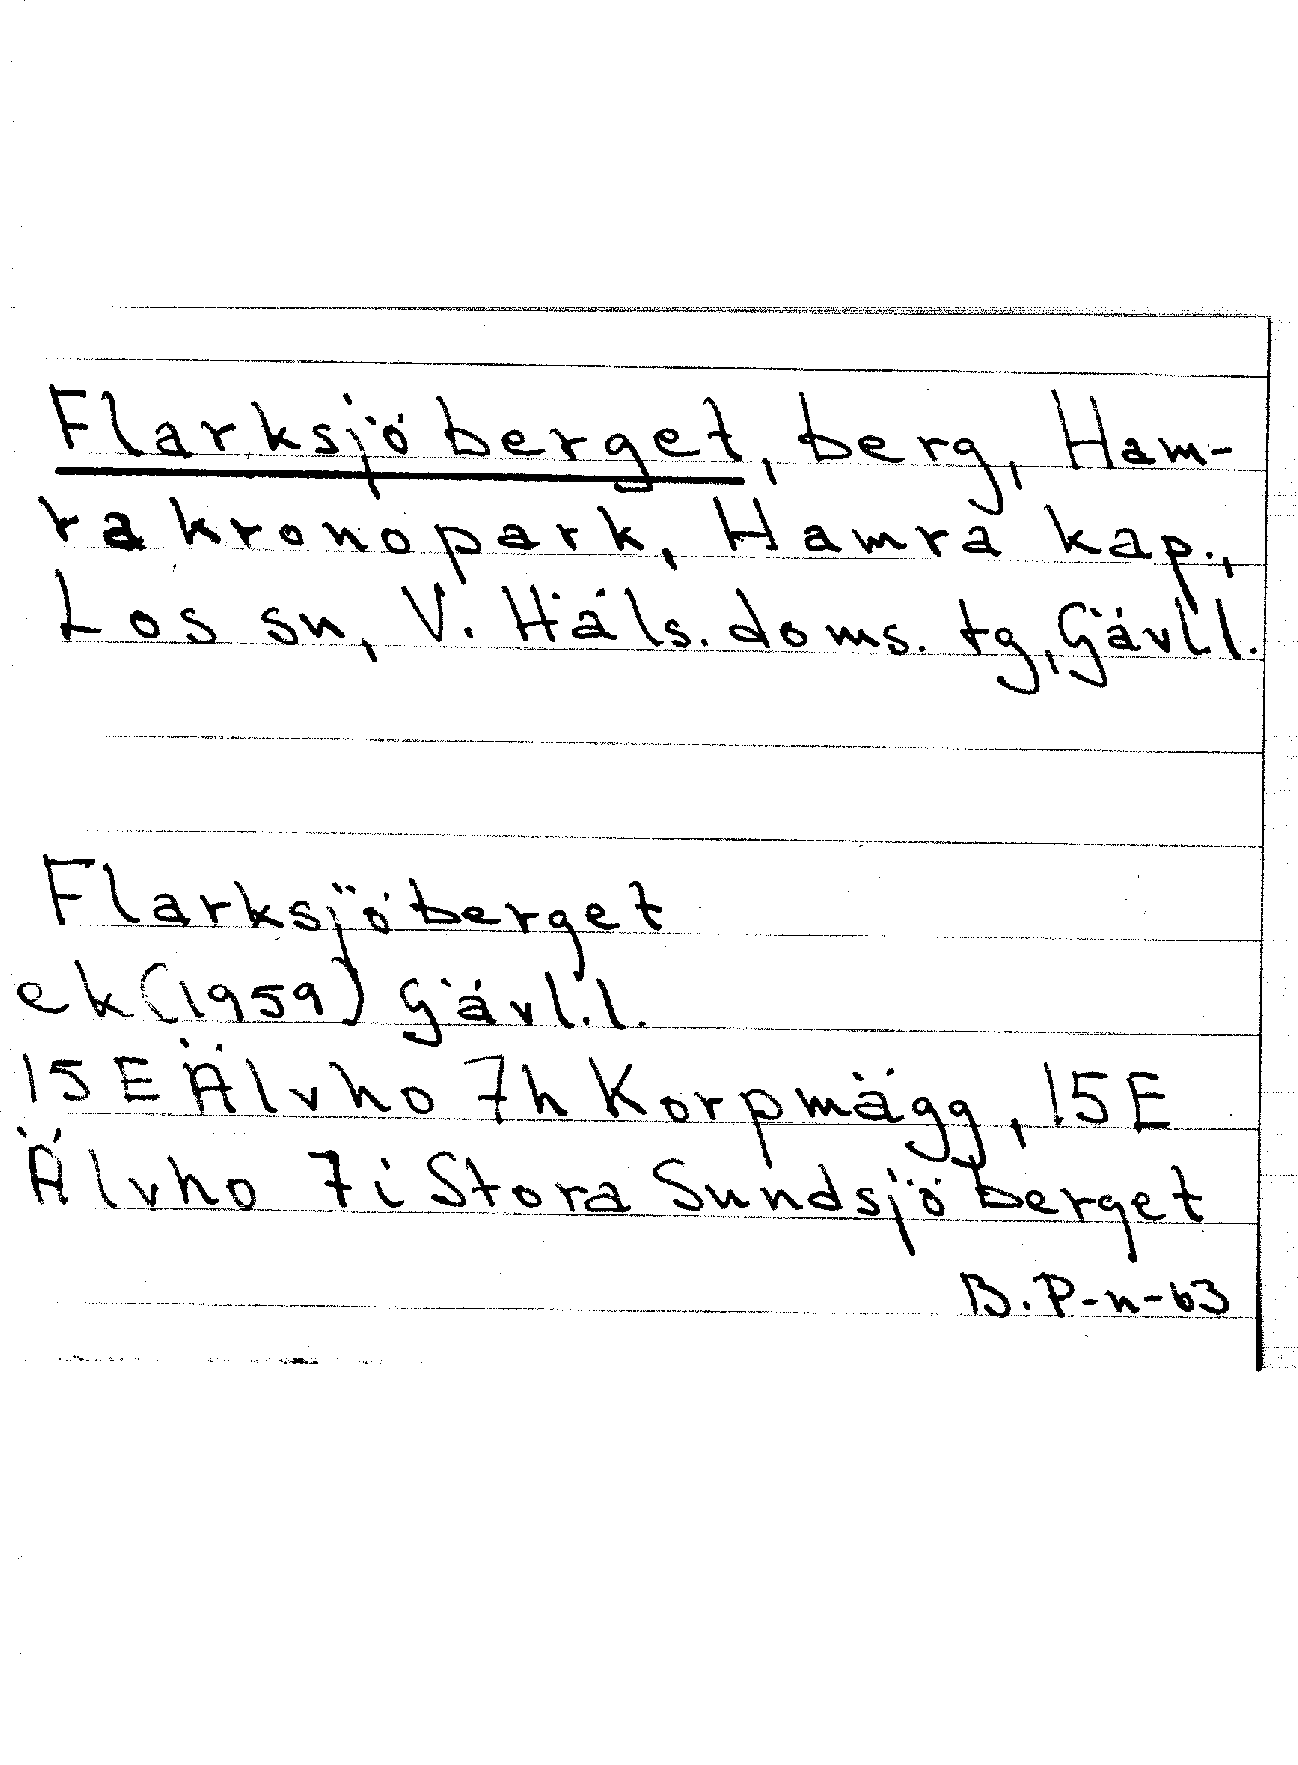 Flarksjöberget, berg, Ham-
ra kronopark, Hamra kap.,
Los sn, V. Häls. doms. tg, Gävl.l.
Flarksjöberget
ek (1959) Gävl.l.
15E Älvho 7h Korpmägg, 15E
Älvho 7i Stora Sundsjöberget
B. P-n-63